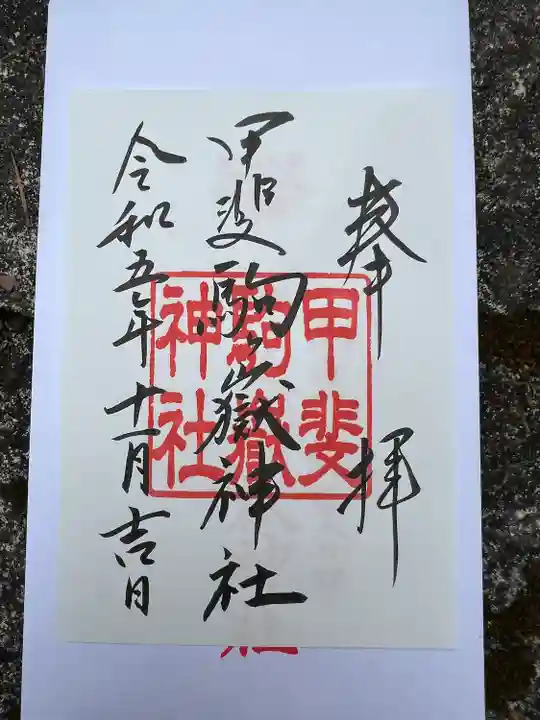 奉拝
甲斐駒ヶ嶽神社
令和五年十一月吉日
甲斐
駒嶽
神社
社